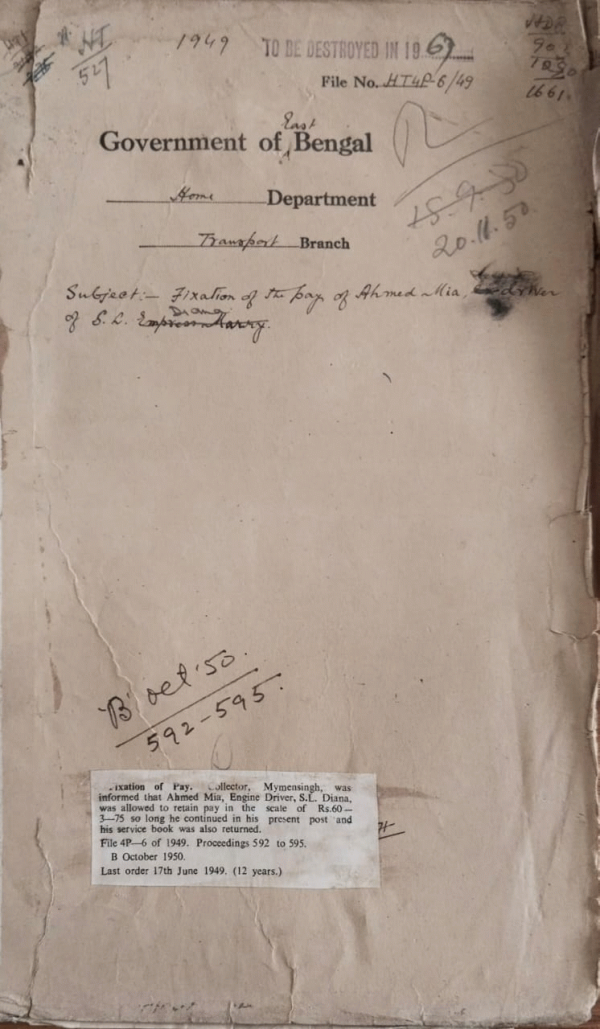 HT
527
1949 TO BE DESTROYED IN 1967
File No. HT4P-6/49
1661.
Government of East Bengal
Home Department
Transport Branch
15.9.50
20.11.50
Subject:- Fixation of the pay of Ahmed Mia, driver
of S. L. Diana
'B' Oct '50.
592-595.
ixation of Pay. Collector, Mymensingh, was
informed that Ahmed Mia, Engine Driver, S.L. Diana,
was allowed to retain pay in the scale of Rs.60—
3—75 so long he continued in his present post and
his service book was also returned.
File 4P—6 of 1949. Proceedings 592 to 595.
B October 1950.
Last order 17th June 1949. (12 years.)